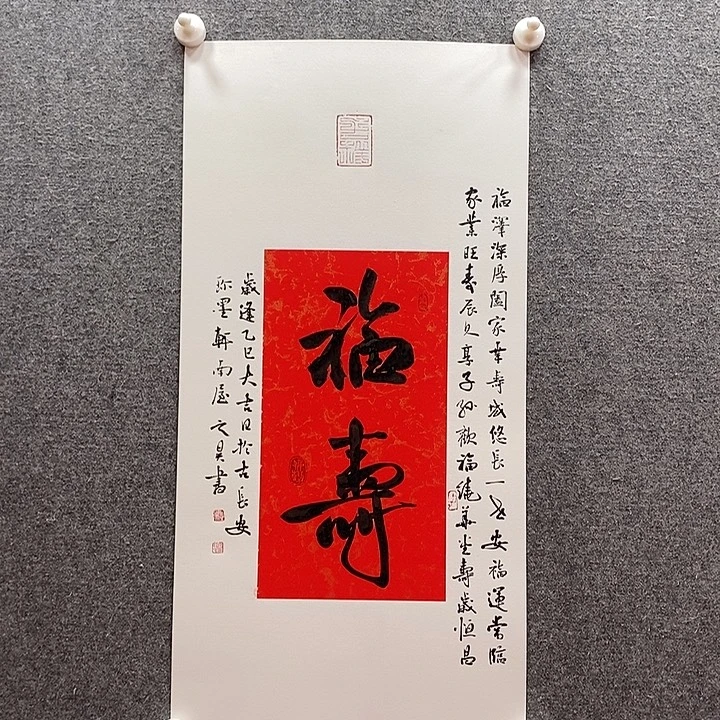 福澤深厚闔家幸壽域悠長一世安福運常臨
家業旺壽辰久享子孫歡福繞華堂壽歲恒昌
福壽
歲逢乙巳大吉日於古長安
珎墨軒南屋文昊書